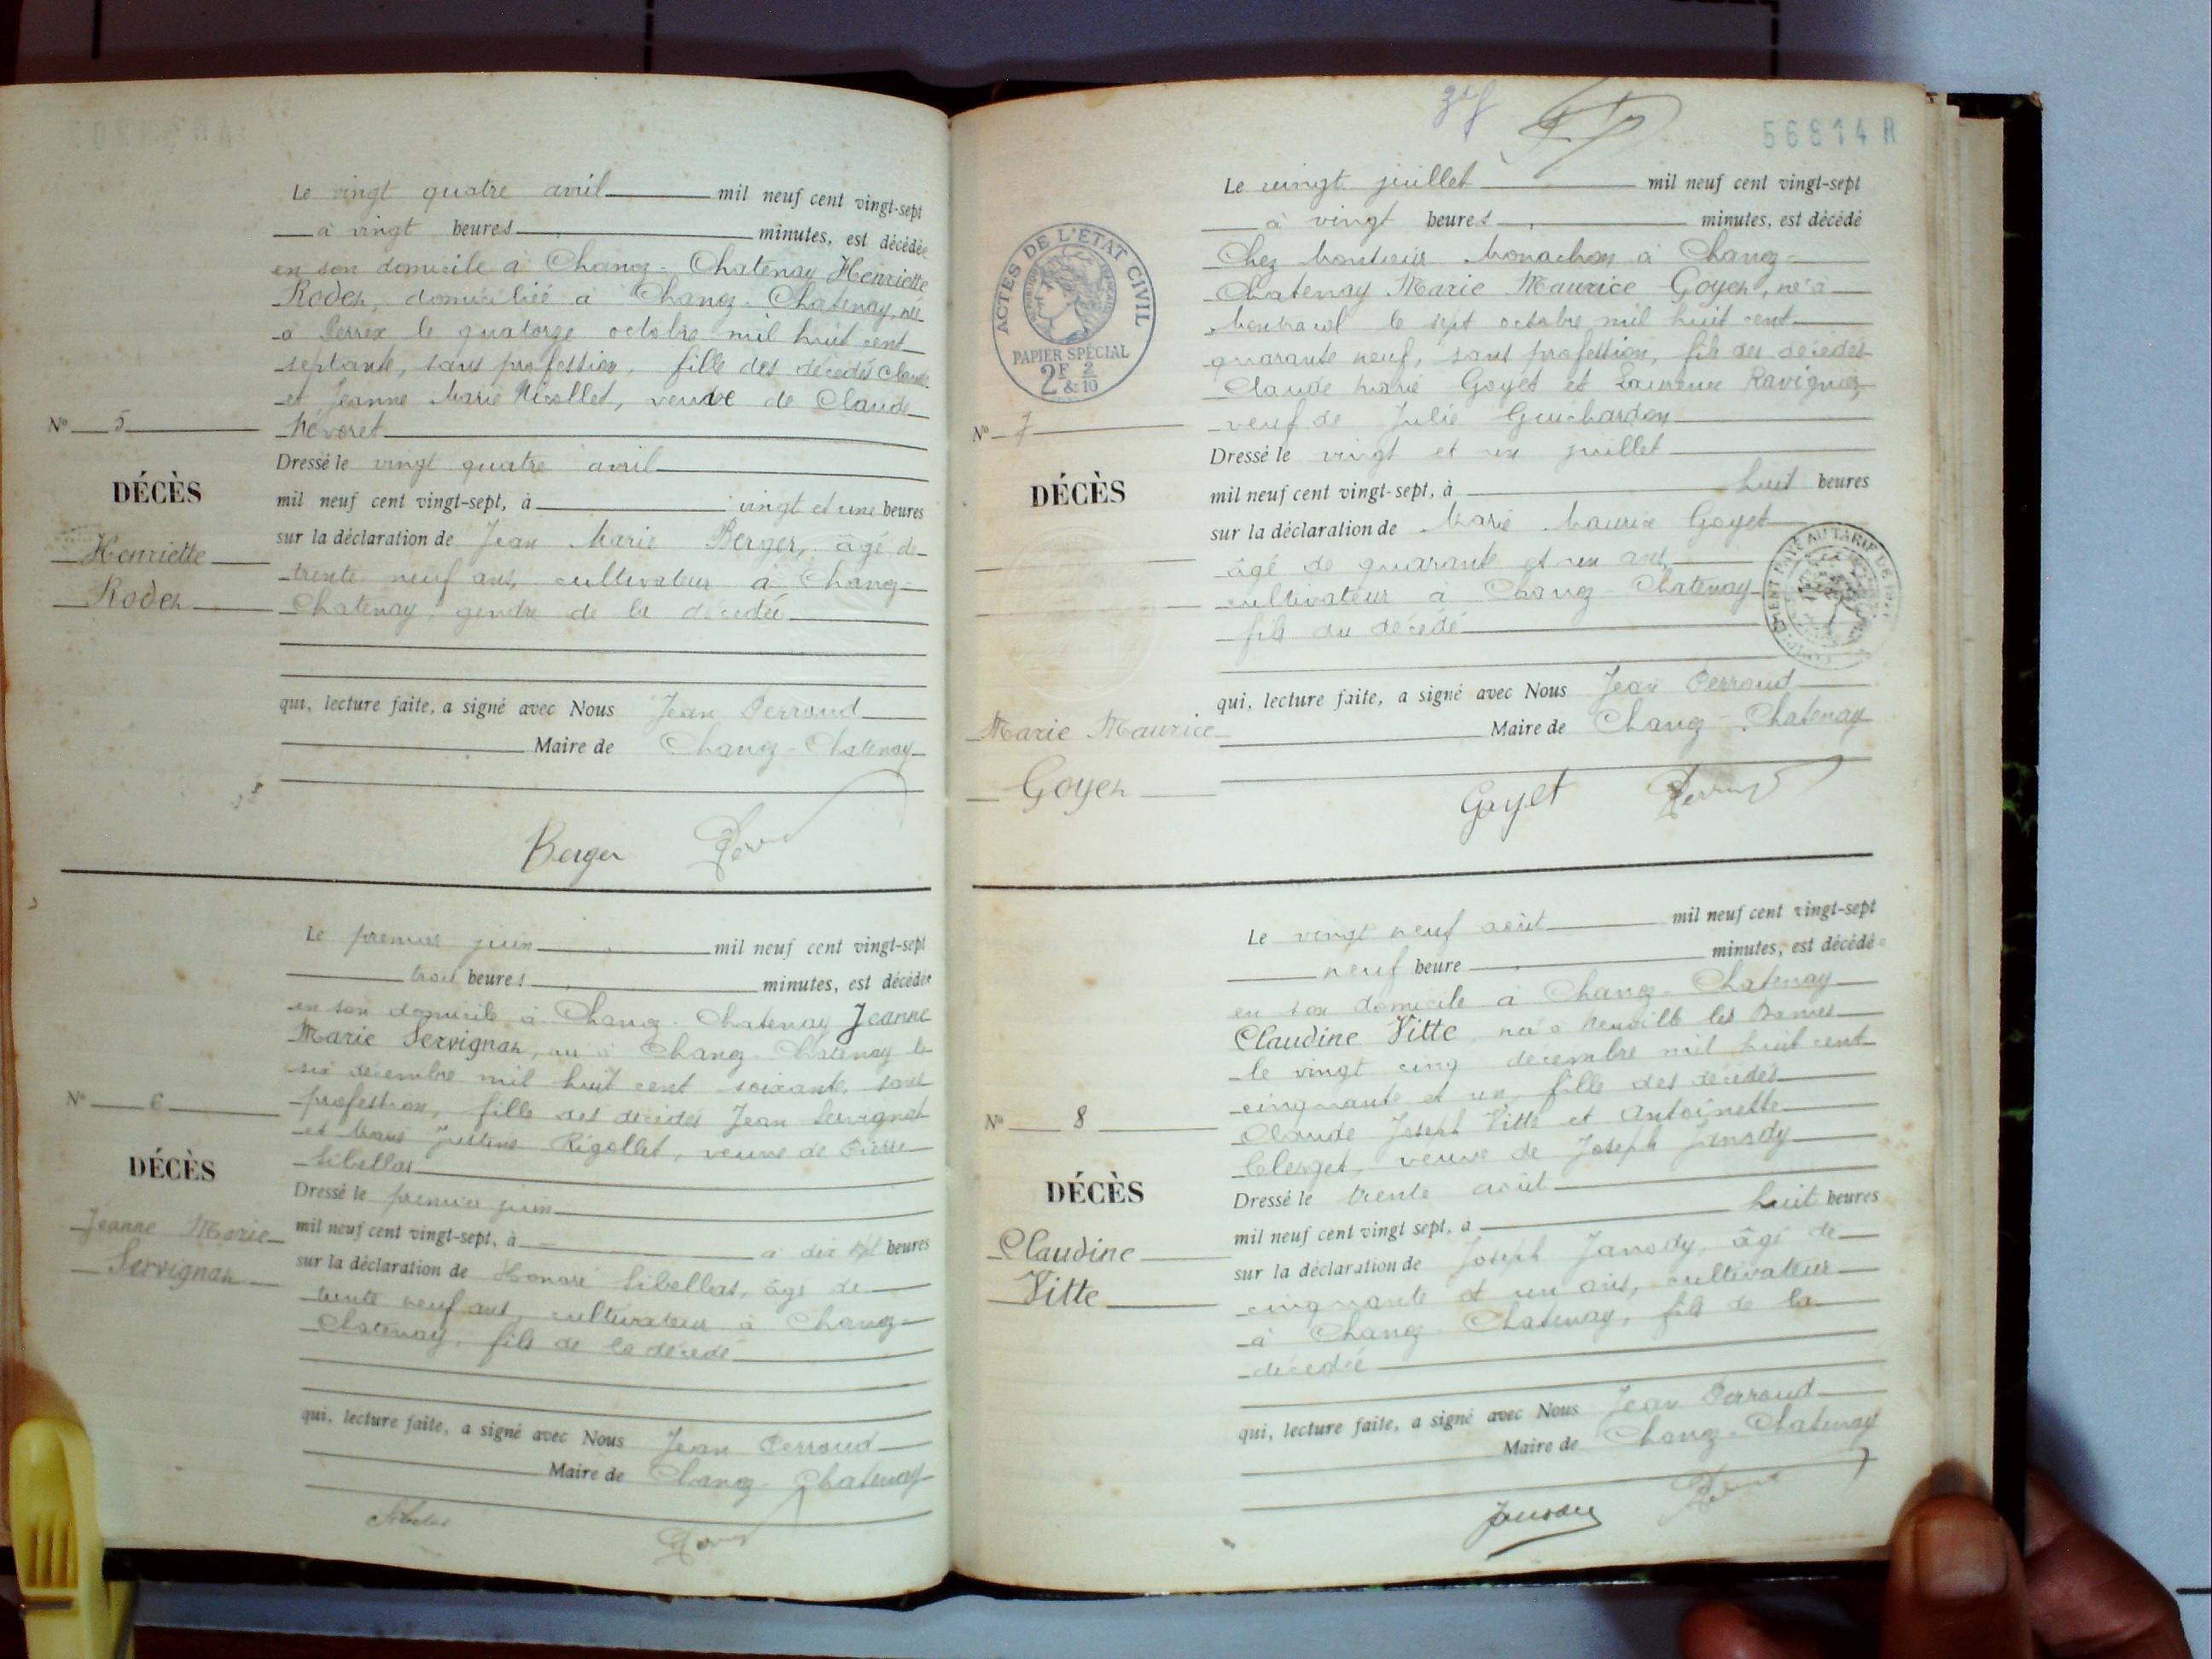 Le vingt quatre avril mil neuf cent vingt-sept
à vingt heures minutes, est décédée
en son domicile à Chanoz-Chatenay Henriette
Rodet, domiciliée à Chanoz-Chatenay, née
à Perrex le quatorze octobre mil huit cent
septante, sans profession, fille des décédés Claude
et Jeanne Marie Nicollet, veuve de Claude
Névoret
Nº 5
DÉCÈS
Henriette
Rodet
Dressé le vingt quatre avril
mil neuf cent vingt-sept, à vingt et une heures
sur la déclaration de Jean Marie Berger, âgé de
trente neuf ans, cultivateur à Chanoz-
Chatenay, gendre de la décédée
qui, lecture faite, a signé avec Nous Jean Perroud
Maire de Chanoz-Chatenay
Berger
Le premier juin mil neuf cent vingt-sept
trois heures minutes, est décédée
en son domicile à Chanoz-Chatenay Jeanne
Marie Servignat, née à Chanoz-Chatenay le
six décembre mil huit cent soixante, sans
profession, fille des décédés Jean Servignat
et Marie Justine Rigollet, veuve de Pierre
Sibellas
Nº 6
DÉCÈS
Jeanne Marie
Servignat
Dressé le premier juin
mil neuf cent vingt-sept, à à dix sept heures
sur la déclaration de Honoré Sibellas, âgé de
trente neuf ans, cultivateur à Chanoz-
Chatenay, fils de la décédé
qui, lecture faite, a signé avec Nous Jean Perroud
Maire de Chanoz-Chatenay
56814 R
ACTES DE L'ÉTAT CIVIL
PAPIER SPÉCIAL
2F & 2/10
Le vingt juillet mil neuf cent vingt-sept
à vingt heures minutes, est décédé
Chez Monsieur Monachon à Chanoz-
Chatenay Marie Maurice Goyet, né à
le sept octobre mil huit cent
quarante neuf, sans profession, fils des décédés
Claude Marie Goyet et Laurence Ravignier,
veuf de Julie Guichardon
Nº 7
DÉCÈS
Marie Maurice
Goyet
Dressé le vingt et un juillet
mil neuf cent vingt-sept, à huit heures
sur la déclaration de Marie Maurice Goyet
âgé de quarante et un ans,
cultivateur à Chanoz-Chatenay
fils du décédé
qui, lecture faite, a signé avec Nous Jean Perroud
Maire de Chanoz-Chatenay
Goyet
Le vingt neuf août mil neuf cent vingt-sept
neuf heure minutes, est décédée
en son domicile à Chanoz-Chatenay
Claudine Vitte née à Neuville les Dames
le vingt cinq décembre mil huit cent
cinquante et un, fille des décédés
Claude Joseph Vitte et Antoinette
Clerget, veuve de Joseph Janody
Nº 8
DÉCÈS
Claudine
Vitte
Dressé le trente août
mil neuf cent vingt sept, à huit heures
sur la déclaration de Joseph Janody, âgé de
cinquante et un ans, cultivateur
à Chanoz Chatenay, fils de la
décédée
qui, lecture faite, a signé avec Nous Jean Perroud
Maire de Chanoz-Chatenay
Janody